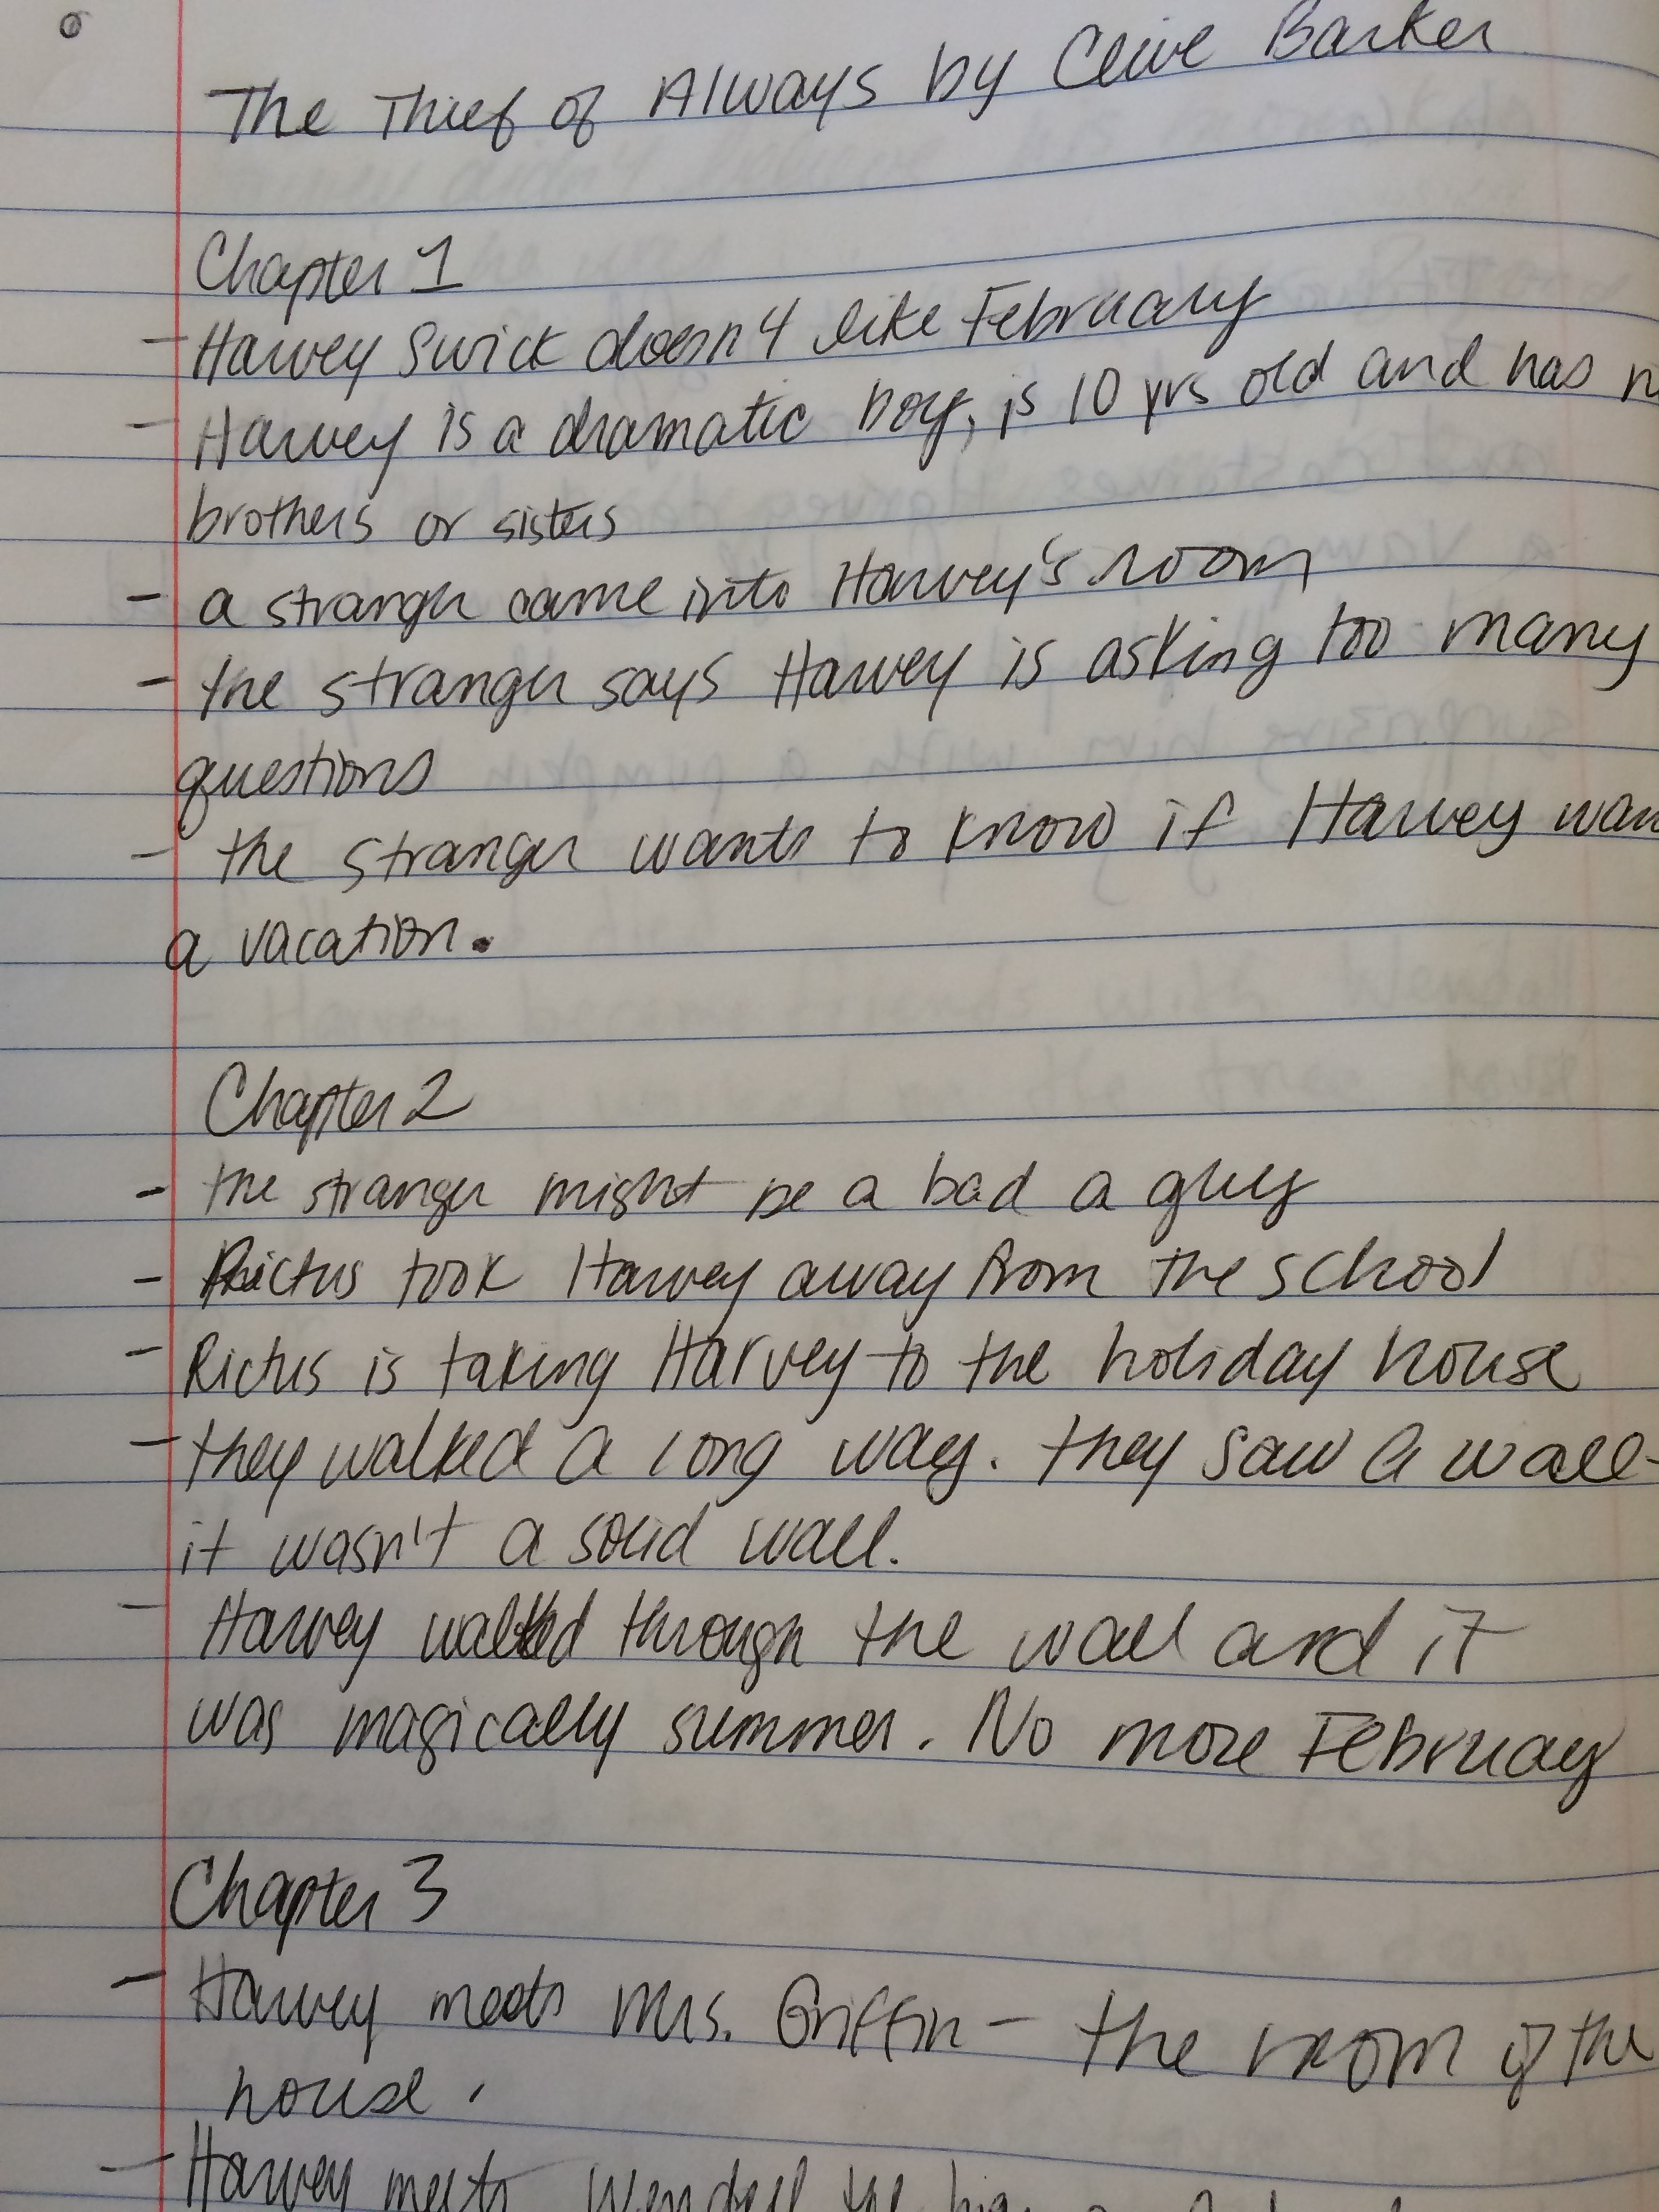 The Thief of Always by Clive Barker
Chapter 1
- Harvey Swick doesn't like February
- Harvey is a dramatic boy, is 10 yrs old and has n
brothers or sisters
- a stranger came into Harvey's room
- the stranger says Harvey is asking too many
questions
- the stranger wants to know if Harvey wan
a vacation.
Chapter 2
- the stranger might be a bad a guy
- Rictus took Harvey away from the school
- Rictus is taking Harvey to the holiday house
- they walked a long way. they saw a wall-
it wasn't a solid wall.
- Harvey walked through the wall and it
was magically summer. No more February
Chapter 3
- Harvey meets Mrs. Griffin - the of the
house.
- Harvey meets Wendell the